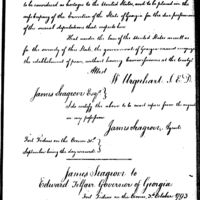 to be considered as hostages to the United States, and to be placed in the
safekeeping of the Executive of the State of Georgia for the due performance
of the several stipulations that respects her.
That under the law of the United States as well as
for the security of this State, the government of Georgia cannot engage
the establishment of peace, without having Commissioners at the treaty
Attest
W. Urquhart, S.E.D.
James Seagrove Esqr.
I do certify the above to be exact copies from the original
in my possession
James Seagrove, Agent
Fort Fidius on the Oconee 30th
September being the day received
James Seagrove to
Edward Telfair Governor of Georgia
Fort Fidius on the Oconee 3d October 1793